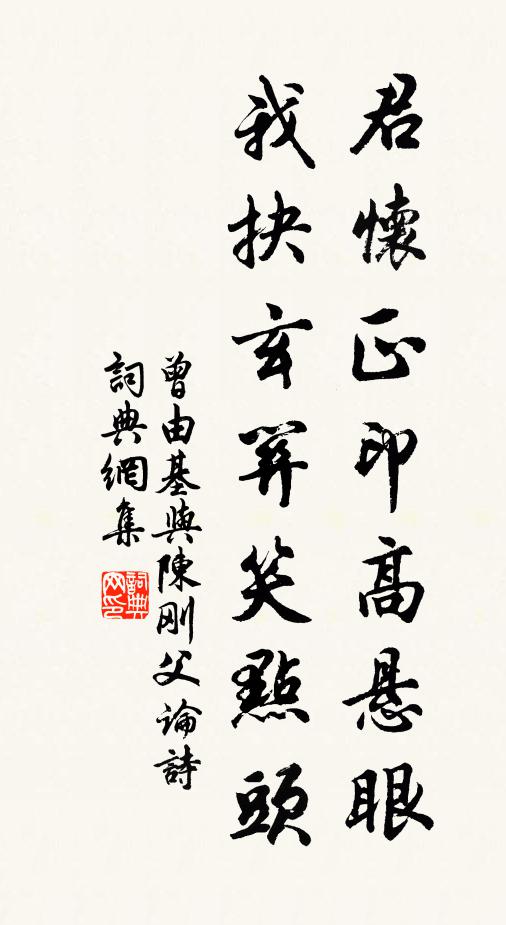 君懷正印高悬眼
我抉玄關笑點頭
曾由基與陳刚父論詩
詞典網集
詞典网印